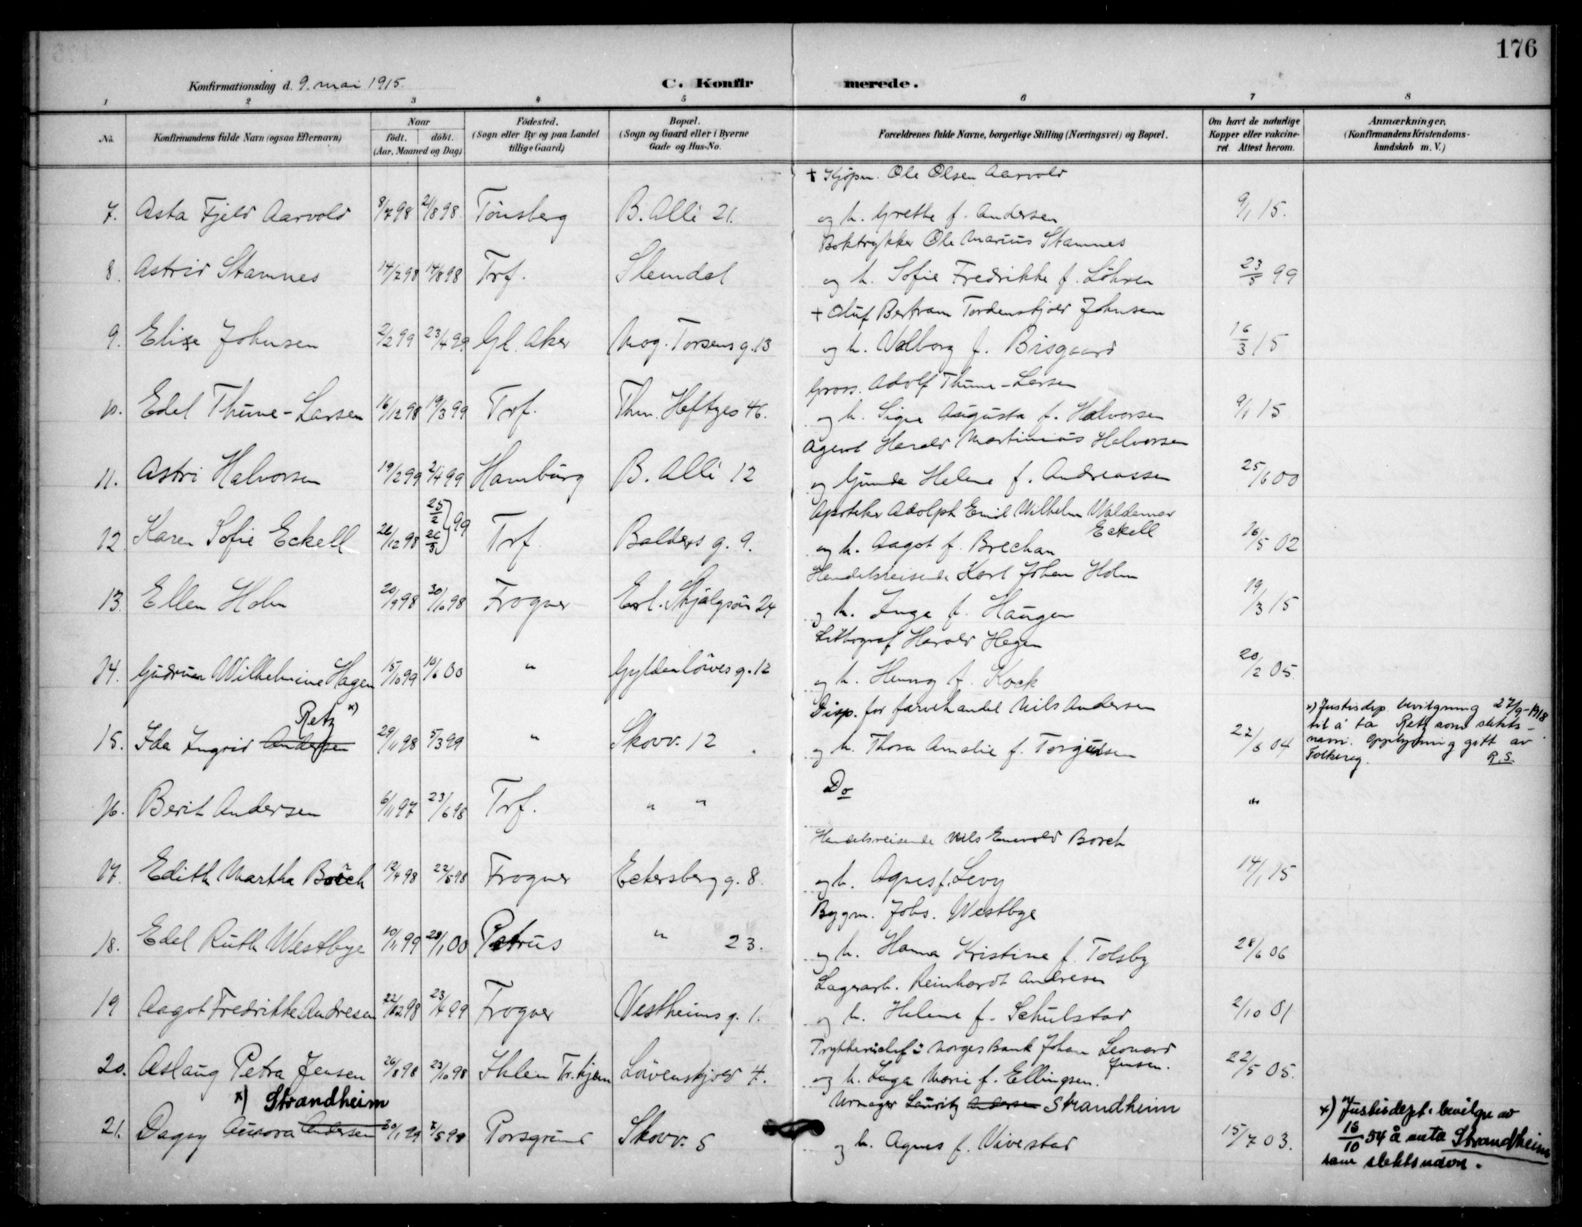 176
Konfirmationsdag d. 9. mai 1915.
C. Konfirmerede.
1 2 3 4 5 6 7 8
No. Konfirmandens fulde Navn (ogsaa Efternavn) Naar født. døbt. (Aar, Maaned og Dag) Fødested. (Sogn eller By og paa Landet tillige Gaard) Bopæl. (Sogn og Gaard eller i Byerne Gade og Hus-No. Forældrenes fulde Navne, borgerlige Stilling (Næringsvei) og Bopæl. Om havt de naturlige Kopper eller vakcineret. Attest herom. Anmærkninger. (Konfirmandens Kristendomskundskab m. V.)
† Kjøpm. Ole Olsen Aarvold
7. Asta Fjeld Aarvold 8/7 98 21/8 98 Tønsberg B. Allé 21. og h. Grethe f. Andersen 9/1 15.
Boktrykker Ole Marius Stamnes
8. Astrid Stamnes 14/7 98 14/8 98 Trf. Slemdal og h. Sofie Fredrikke f. Löhren 23/5 99
† Oluf Bertram Tordenskjold Johnsen
9. Elise Johnsen 2/2 99 23/4 99 Gl. Aker Mog. Torsens g. 13 og h. Valborg f. Bisgaard 16/3 15
Gross. Adolf Thune-Larsen
10. Edel Thune-Larsen 16/12 98 19/3 99 Trf. Thm. Heftyes 46. og h. Signe Augusta f. Halvorsen 9/1 15
Agent Harald Martinius Halvorsen
11. Astri Halvorsen 19/2 99 2/4 99 Hamburg B. Allé 12 og Gunda Helene f. Andreassen 25/6 00
Apoteker Adolph Emil Wilhelm Valdemar Eckell
12. Karen Sofie Eckell 26/12 98 25/2 26/3 } 99 Trf. Balders g. 9. og h. Aagot f. Brechan 26/5 02
Handelsreisende Karl Johan Holm
13. Ellen Holm 20/9 98 30/10 98 Frogner Erl. Skjalgsøns 24 og h. Inga f. Haugen 19/3 15
Lithograf Harald Hagen
14. Gudrun Wilhelmine Hagen 15/10 99 10/6 00 " Gyldenløves g. 12 og h. Henny f. Kock 20/2 05
Disp. for farvehandel Nils Andersen
Retz x)
15. Ida Ingrid Andersen 29/11 98 5/3 99 " Skovv. 12 og h. Thora Amalie f. Torgersen 22/6 04
x) Justisdep. bevilgning 27/9-1918 til å ta Retz som slektsnavn. Opplysning gitt av Folkereg. R.S.
16. Berit Andersen 6/11 97 23/6 98 Trf. " " Do "
Handelsreisende Nils Enevold Borch
17. Edith Martha Borch 12/4 98 22/5 98 Frogner Eckersberg g. 8. og h. Agnes f. Levy 14/1 15
Bygm. Johs. Westbye
18. Edel Ruth Westbye 10/11 99 28/1 00 Petrus " 23. og h. Hanna Kristine f. Tolsby 28/6 06
Lagerarb. Reinhardt Andresen
19 Aagot Fredrikke Andresen 22/12 98 23/4 99 Frogner Vestheims g. 1. og h. Helene f. Schulstad 2/10 01
Trykkerichef i Norges Bank Johan Leonard Jensen.
20. Aslaug Petra Jensen 26/8 98 23/10 98 Ihlen Tr.hjem Løvenskjold 4. og h. Inga Marie f. Ellingsen. 22/5 05.
x) Strandheim
Urmager Lauritz Andersen Strandheim
21. Dagny Aurora Andersen 20/1 99 7/5 99 Porsgrund Skovv. 5 og h. Agnes f. Vivestad 15/7 03.
x) Justisdept. bevilge av 16/10 54 å anta Strandheim som slektsnavn.